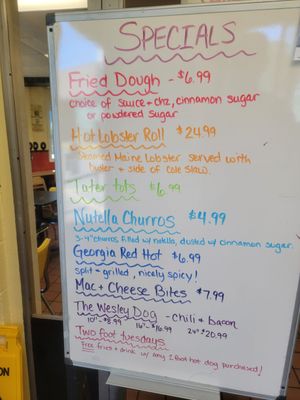 SPECIALS
Fried Dough - $6.99
choice of sauce + chz, cinnamon sugar
or powdered sugar
Hot Lobster Roll $24.99
Steamed Maine Lobster served with
butter + side of cole slaw.
Tater tots $6.99
Nutella Churros $4.99
3-4" churros filled w/ nutella, dusted w/ cinnamon sugar.
Georgia Red Hot $6.99
split + grilled, nicely spicy!
Mac + Cheese Bites $7.99
The Wesley Dog - chili & bacon
10" - $8.99 16" - $16.99 24" $20.99
Two foot tuesdays
Free fries + drink w/ any 2 foot hot dog purchased!
ON